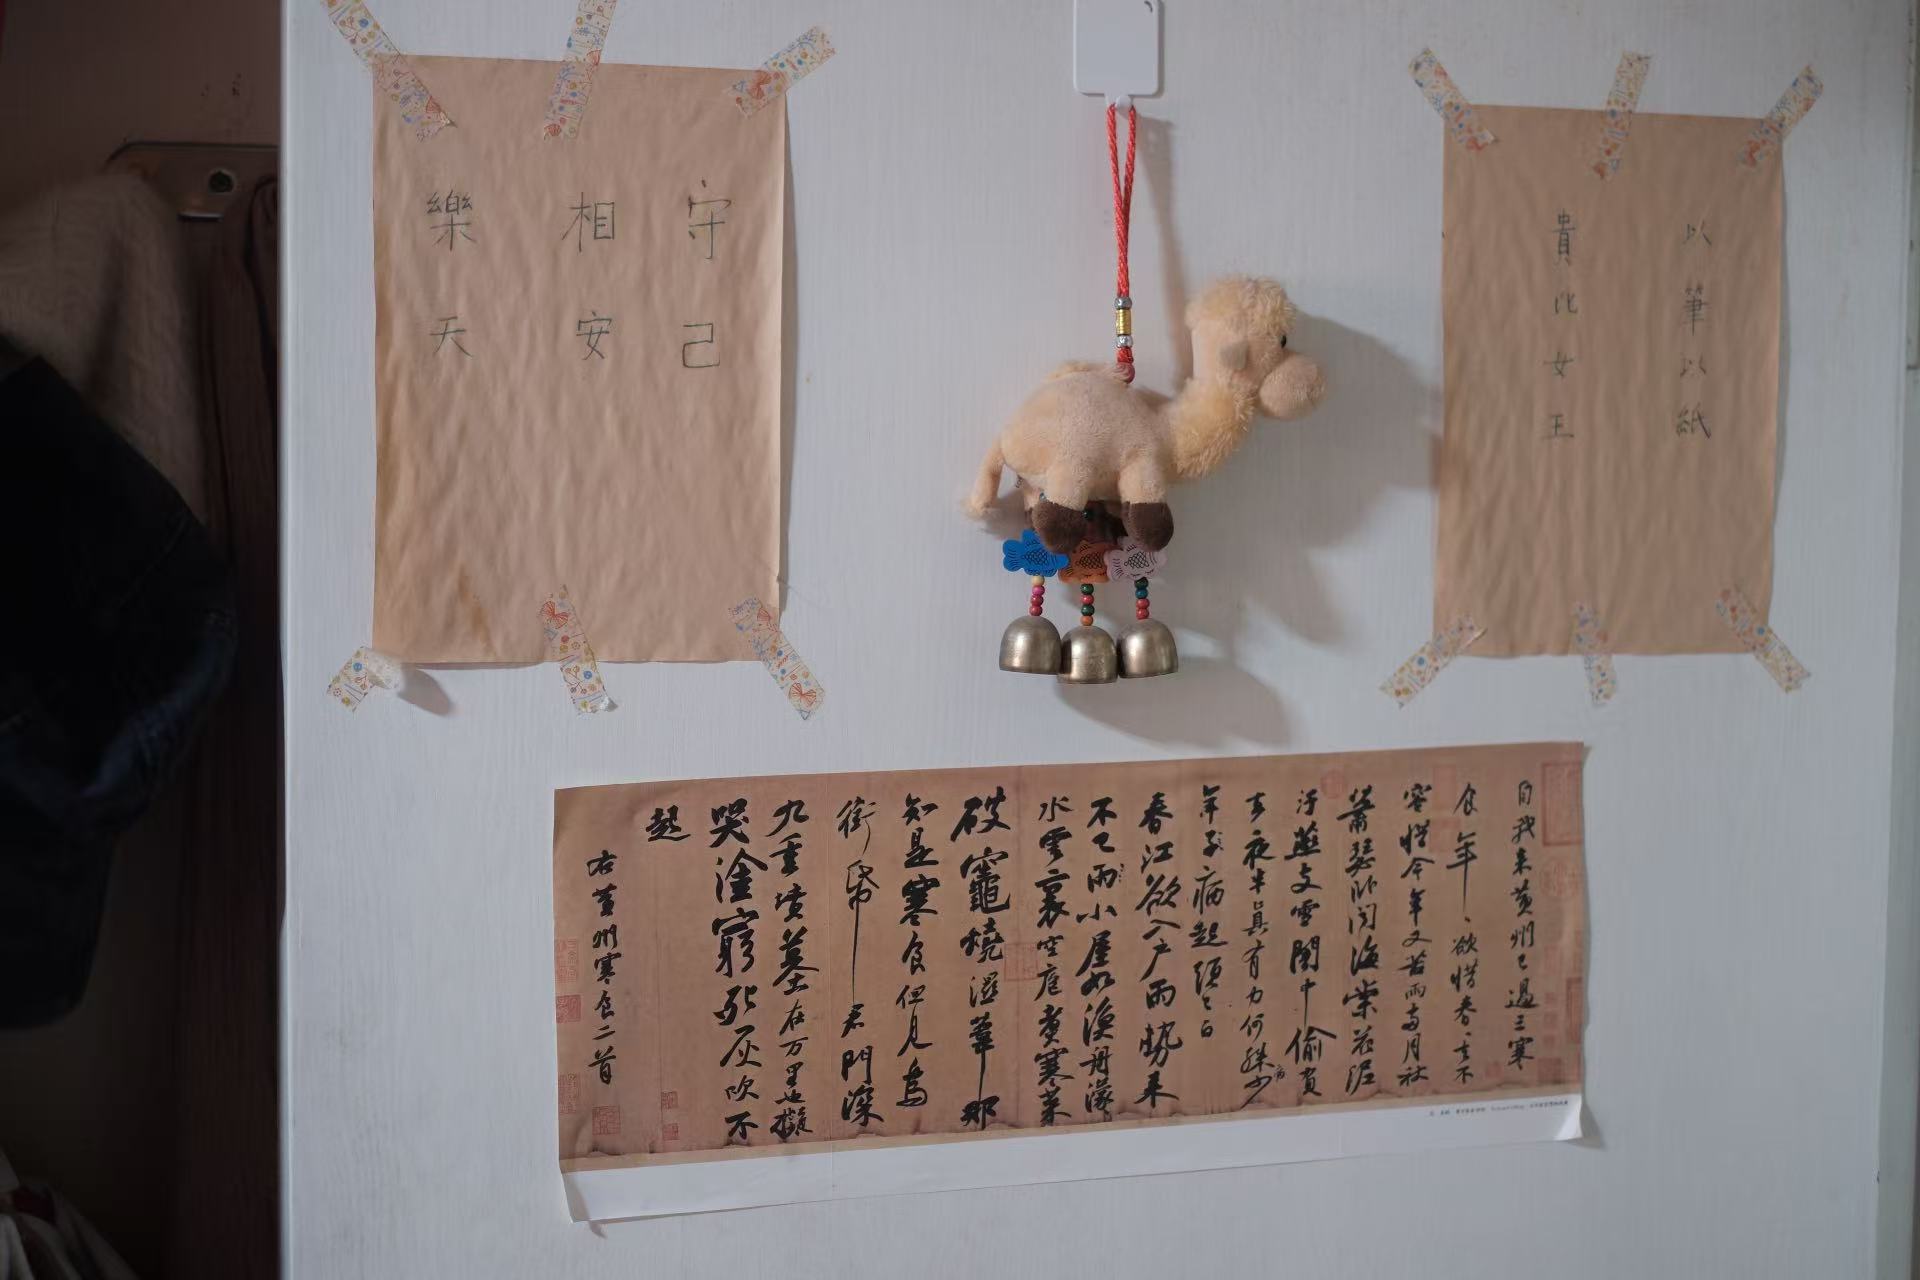 守己
相安
樂天
以筆以紙
貴比女王
自我来黄州已過三寒
食年、欲惜春、去不
容惜今年又苦雨兩月秋
蕭瑟卧聞海棠花泥
汙燕支雪闇中偷負
去夜半真有力何殊病少
年子病起須已白
春江欲入户雨勢来
不已雨小屋如漁舟濛
水雲裏空庖煮寒菜
破竈燒濕葦那
知是寒食但見烏
銜帋君門深
九重墳墓在万里也擬
哭塗窮死灰吹不
起
右黄州寒食二首